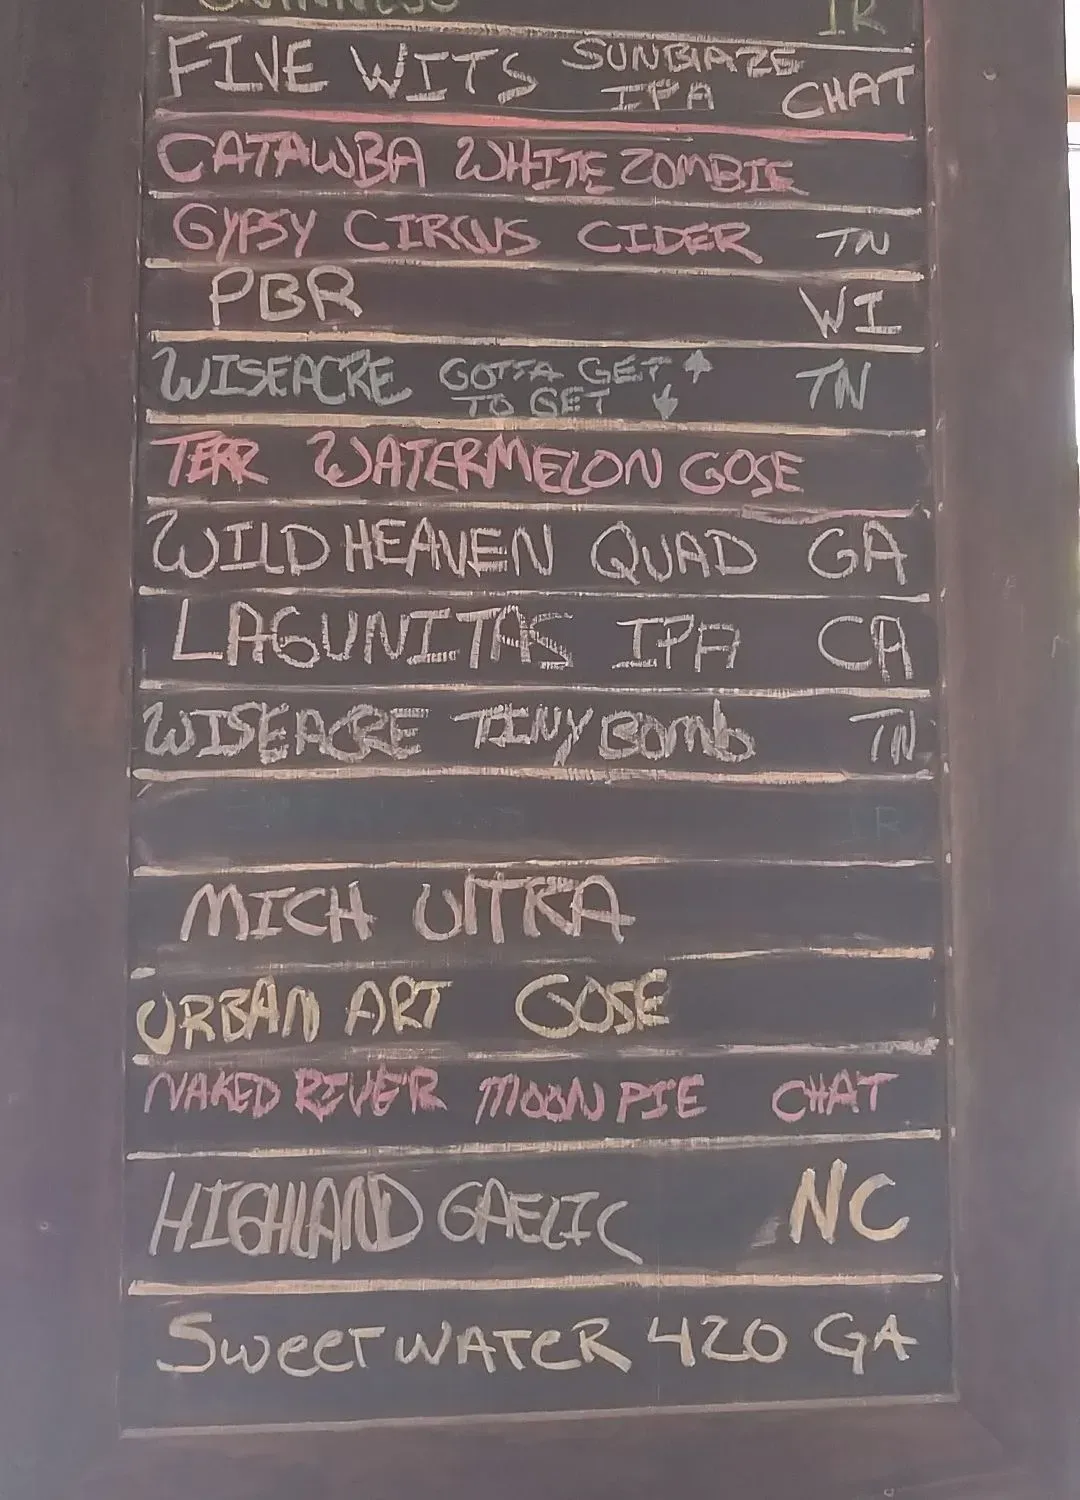 GUINNESS IR
FIVE WITS SUNBLAZE IPA CHAT
CATAWBA WHITE ZOMBIE
GYPSY CIRCUS CIDER TN
PBR WI
WISEACRE GOTTA GET ↑ TO GET ↓ TN
TERR WATERMELON GOSE
WILD HEAVEN QUAD GA
LAGUNITAS IPA CA
WISEACRE TINY BOMB TN
IR
MICH ULTRA
URBAN ART GOSE
NAKED RIVER MOON PIE CHAT
HIGHLAND GAELIC NC
SWEETWATER 420 GA